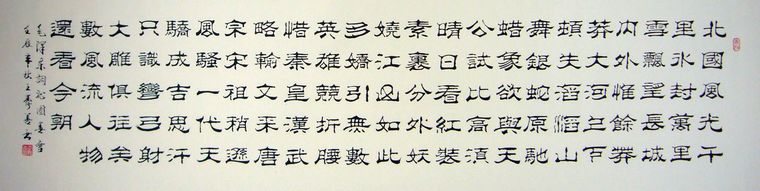 北國風光千
里冰封萬里
雪飄望長城
内外惟餘莽
莽大河上下
頓失滔滔山
舞銀蛇原馳
蜡象欲與天
公試比高須
晴日看紅裝
素裹分外妖
嬈江山如此
多嬌引無數
英雄競折腰
惜秦皇漢武
略輸文采唐
宗宋祖稍遜
風騷一代天
驕成吉思汗
只識彎弓射
大雕俱往矣
數風流人物
還看今朝
毛澤東詞沁園春雪